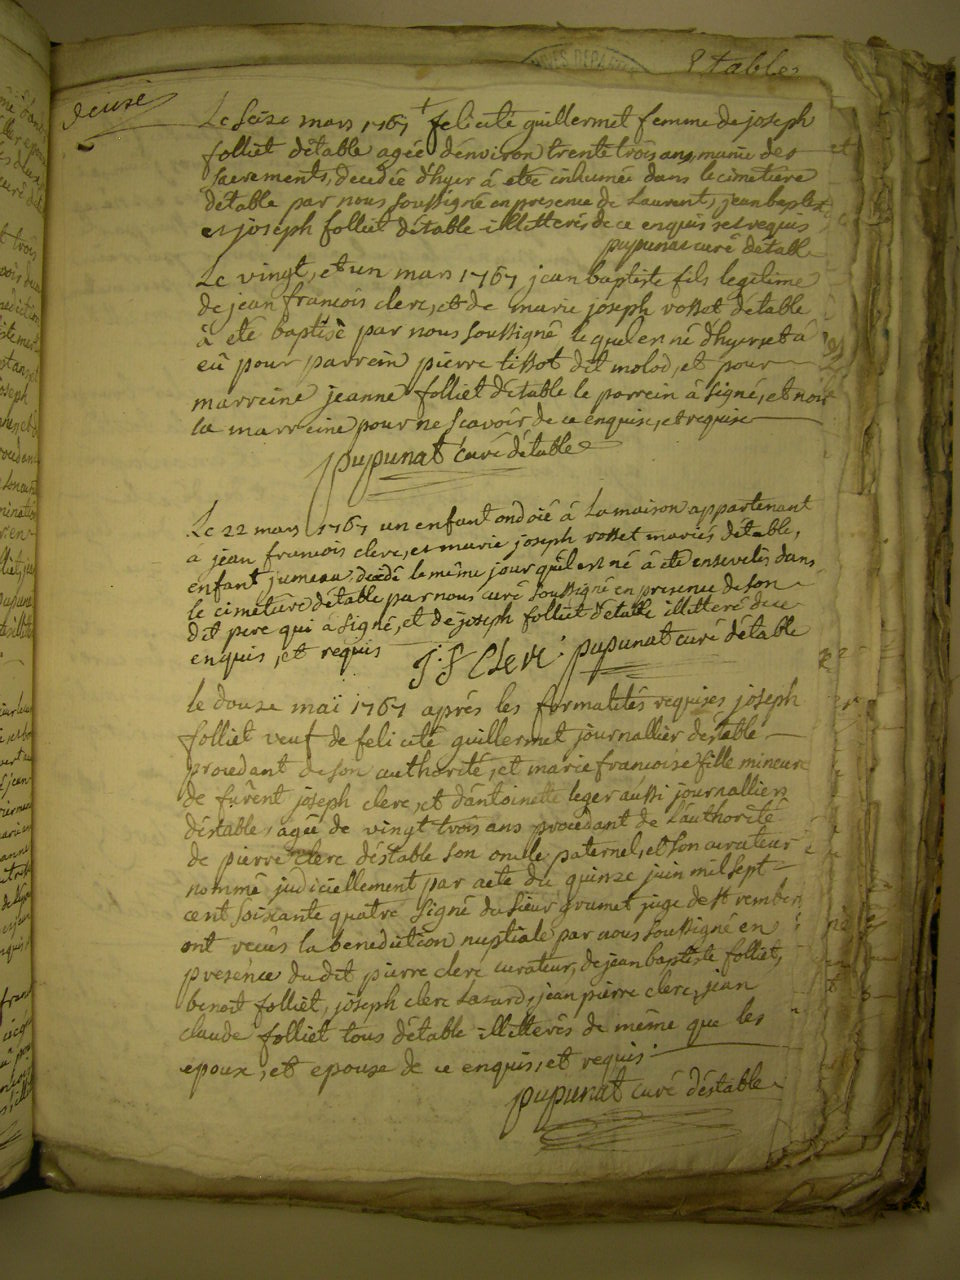 Etables
deuse
Le seize mars 1767 † felicité guillermet femme de joseph
folliet détable agée d'environ trente trois ans, munie des
sacrements, decedée d'hyer á eté inhumée dans le cimetiére
détable par nous soussigné en presence de Laurent, jean baptiste
et joseph folliet détable illitterés de ce enquis et requis
pupunat curé détable
Le vingt, et un mars 1767 jean baptiste fils legitime
de jean francois clerc, et de marie joseph rosset détable
à eté baptisé par nous soussigné lequel en né d'hyer et á
eû pour parrein pierre tissot dit molod, et pour
marreine jeanne folliet détable le parrein à signé, et non
la marreine pour ne scavoir de ce enquise, et requise
pupunat curé détable
Le 22 mars 1767 un enfant ondoié á la maison appartenant
a jean francois clerc, et marie joseph rosset mariés détable,
enfant jumeau, decédé le même jour qu'il est né á eté ensevelis dans
le cimetiére détable par nous curé soussigné en presence de son
dit pere qui á signé, et de joseph folliet détable illitteré de ce
enquis, et requis J: F Clerc: pupunat curé détable
le douze maï 1767 aprés les formalités requises joseph
folliet veuf de felicité guillermet journallier déstable
procedant de son authorité, et marie francoise fille mineure
de furent joseph clerc, et d'antoinette leger aussi journalliers
déstable, agée de vingt trois ans procedant de l'authorité
de pierre clerc déstable son oncle paternel, et son curateur
nommé judiciellement par acte du quinze juin mil sept
cent soixante quatre signé du sieur grumet juge de st rembert
ont recûs la benediction nuptiale par nous soussigné en
presence du dit pierre clerc curateur, de jean baptiste folliet,
benoit folliet, joseph clerc Lazard, jean pierre clerc, jean
claude folliet tous détable illitterés de même que les
epoux, et epouse de ce enquis, et requis.
pupunat curé déstable